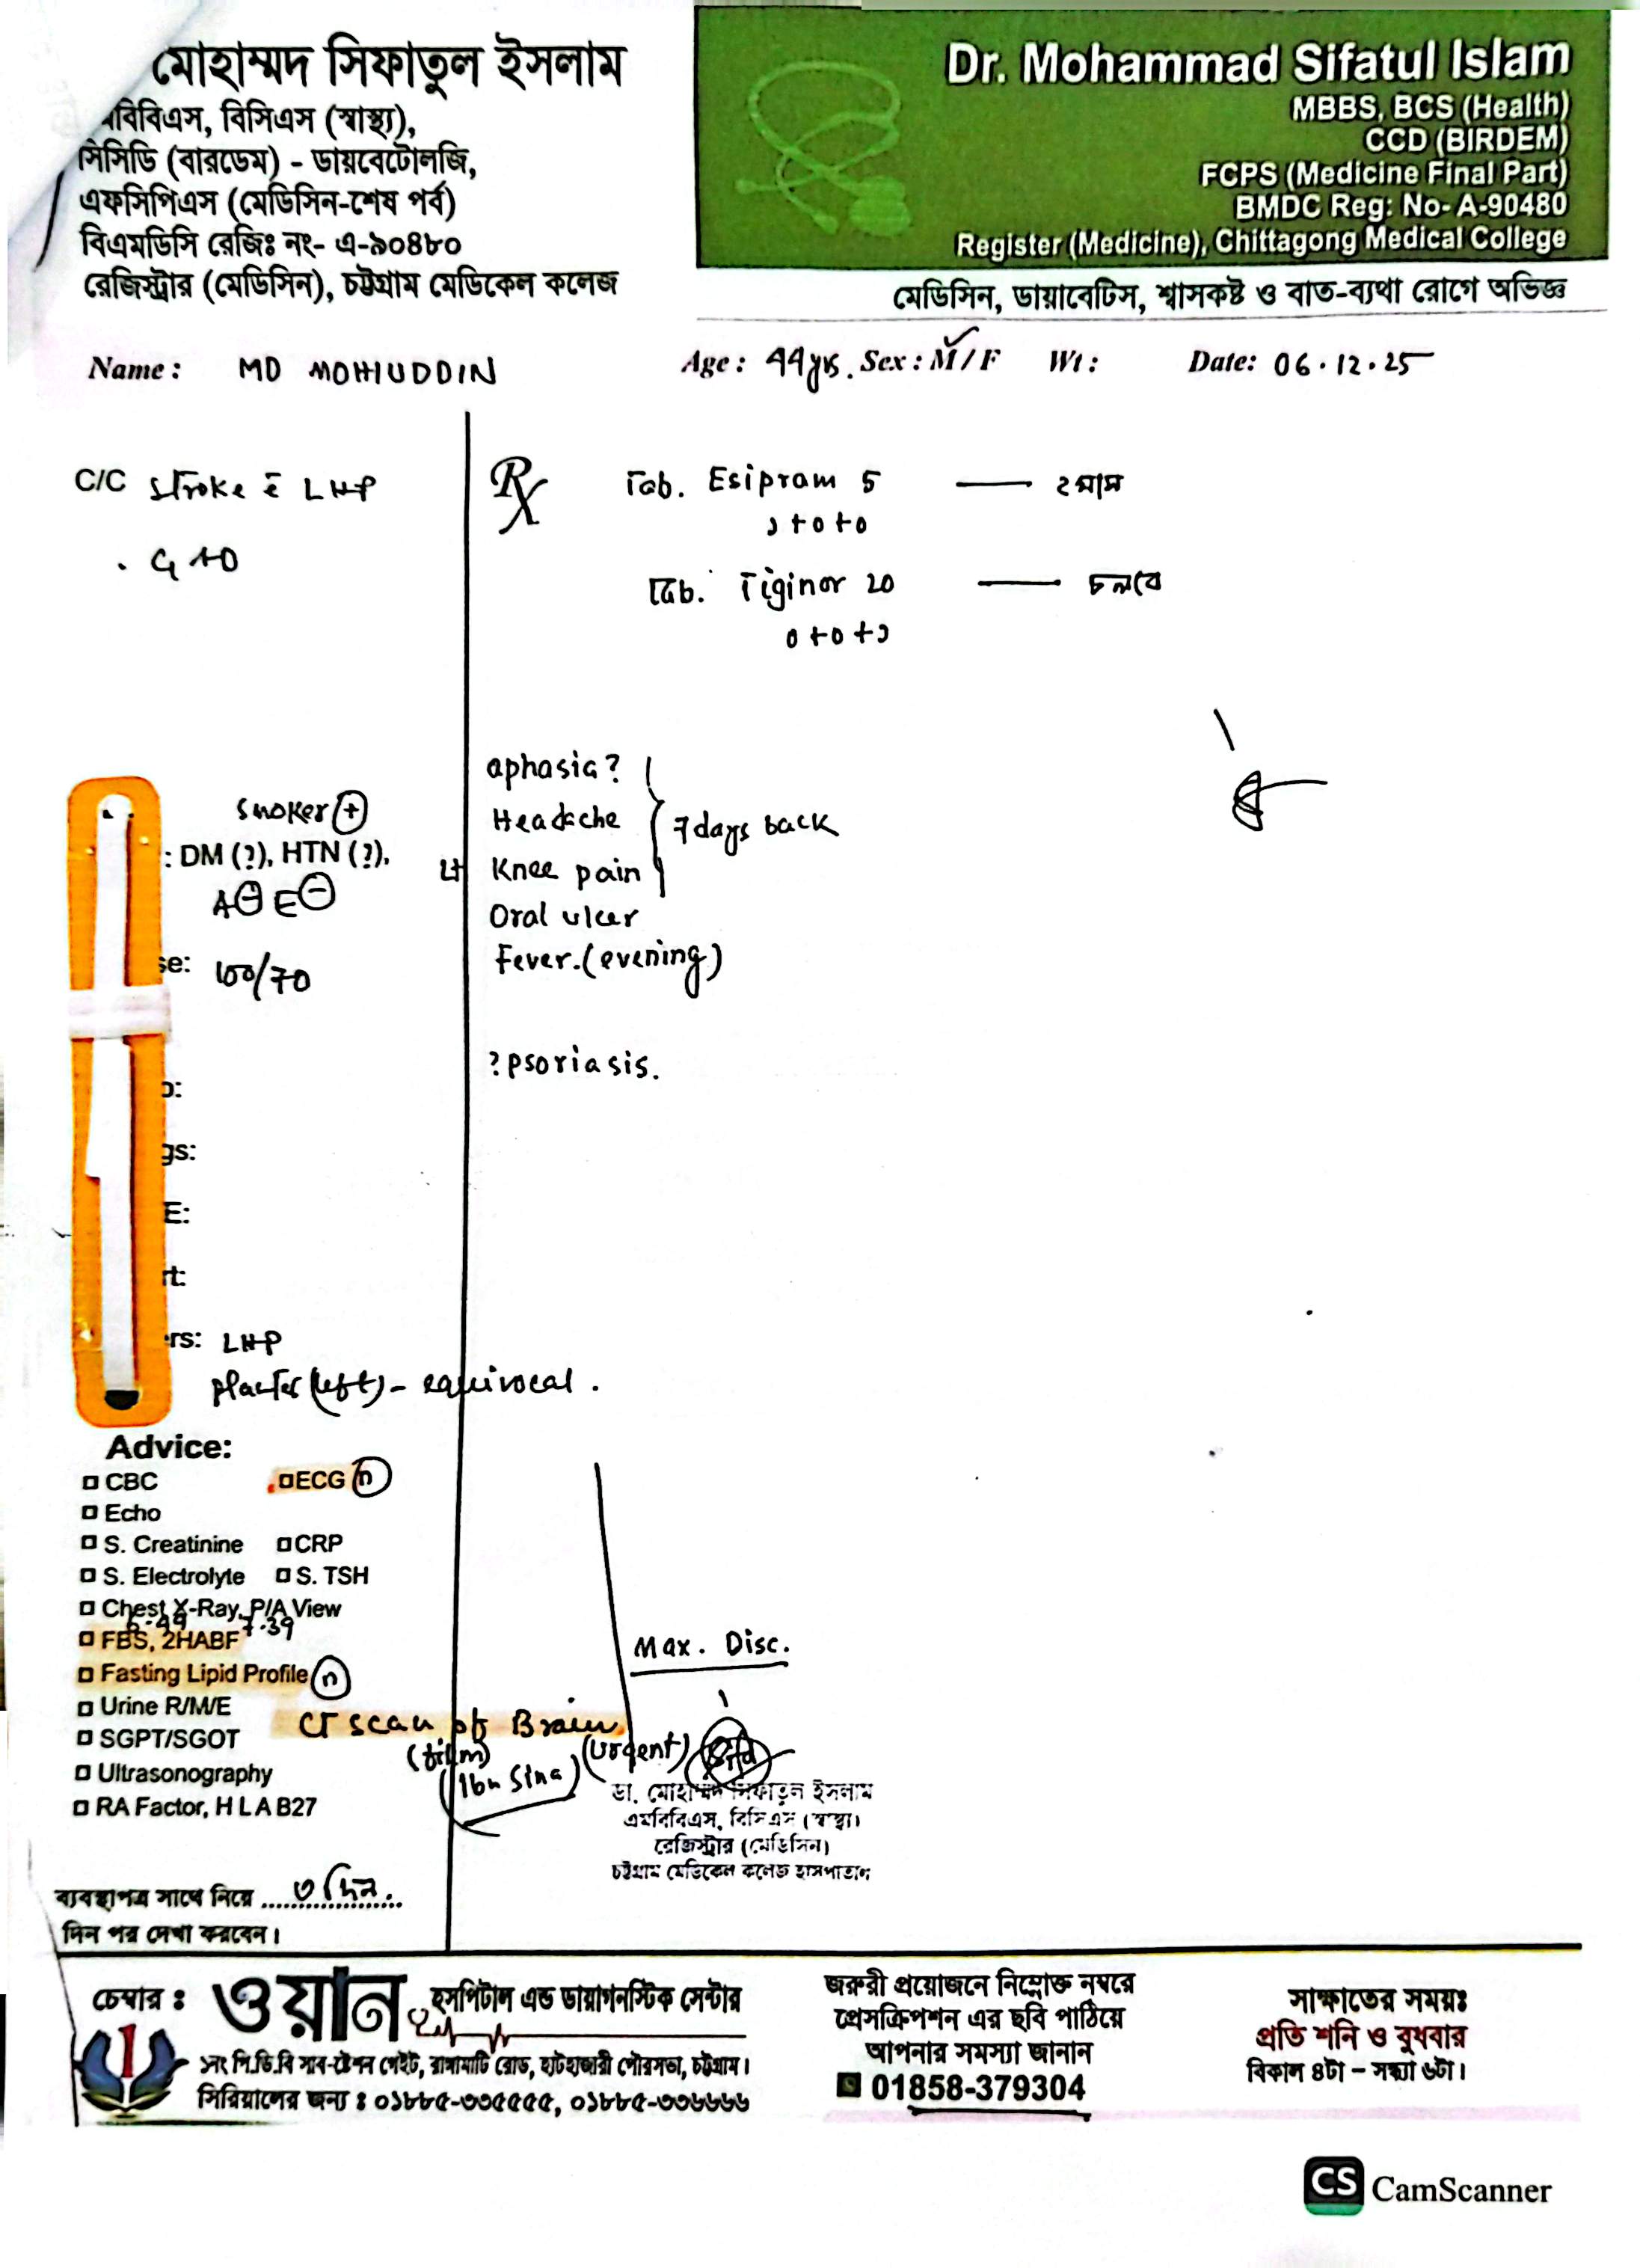 মোহাম্মদ সিফাতুল ইসলাম
বিবিএস, বিসিএস (স্বাস্থ্য),
সিসিডি (বারডেম) - ডায়বেটোলজি,
এফসিপিএস (মেডিসিন-শেষ পর্ব)
বিএমডিসি রেজিঃ নং- এ-৯০৪৮০
রেজিস্ট্রার (মেডিসিন), চট্টগ্রাম মেডিকেল কলেজ
Dr. Mohammad Sifatul Islam
MBBS, BCS (Health)
CCD (BIRDEM)
FCPS (Medicine Final Part)
BMDC Reg: No- A-90480
Register (Medicine), Chittagong Medical College
মেডিসিন, ডায়াবেটিস, শ্বাসকষ্ট ও বাত-ব্যথা রোগে অভিজ্ঞ
Name : MD MOHIUDDIN Age : 44yrs. Sex : M / F Wt : Date: 06.12.25
C/C stroke c̄ LHP
. GAD
Rx
Tab. Esipram 5 — ২মাস
১+০+০
Tab. Tiginor 20 — চলবে
০+০+১
aphasia?
Headache
7 days back
Lt Knee pain
Oral ulcer
Fever. (evening)
? psoriasis.
smoker (+)
: DM (?), HTN (?),
A(-) E(-)
se: 100/70
o:
gs:
E:
rt:
rs: LHP
planter (left) - equivocal.
Advice:
CBC ECG (n)
Echo
S. Creatinine CRP
S. Electrolyte S. TSH
Chest X-Ray, P/A View
6.49 7.39
FBS, 2HABF
Fasting Lipid Profile (n)
Urine R/M/E
SGPT/SGOT
Ultrasonography
RA Factor, H L A B27
CT scan of Brain
(film) (urgent)
(Ibn Sina)
Max. Disc.
ডা. মোহাম্মদ সিফাতুল ইসলাম
এমবিবিএস, বিসিএস (স্বাস্থ্য)
রেজিস্ট্রার (মেডিসিন)
চট্টগ্রাম মেডিকেল কলেজ হাসপাতাল
ব্যবস্থাপত্র সাথে নিয়ে ....৩ দিন....
দিন পর দেখা করবেন।
চেম্বার : ওয়ান হসপিটাল এন্ড ডায়াগনস্টিক সেন্টার
১নং পি.ডি.বি সাব-ষ্টেশন গেইট, রাঙ্গামাটি রোড, হাটহাজারী পৌরসভা, চট্টগ্রাম।
সিরিয়ালের জন্য : ০১৮৮৫-৩৩৫৫৫৫, ০১৮৮৫-৩৩৬৬৬৬
জরুরী প্রয়োজনে নিম্নোক্ত নম্বরে
প্রেসক্রিপশন এর ছবি পাঠিয়ে
আপনার সমস্যা জানান
01858-379304
সাক্ষাতের সময়ঃ
প্রতি শনি ও বুধবার
বিকাল ৪টা – সন্ধ্যা ৬টা।
CS CamScanner